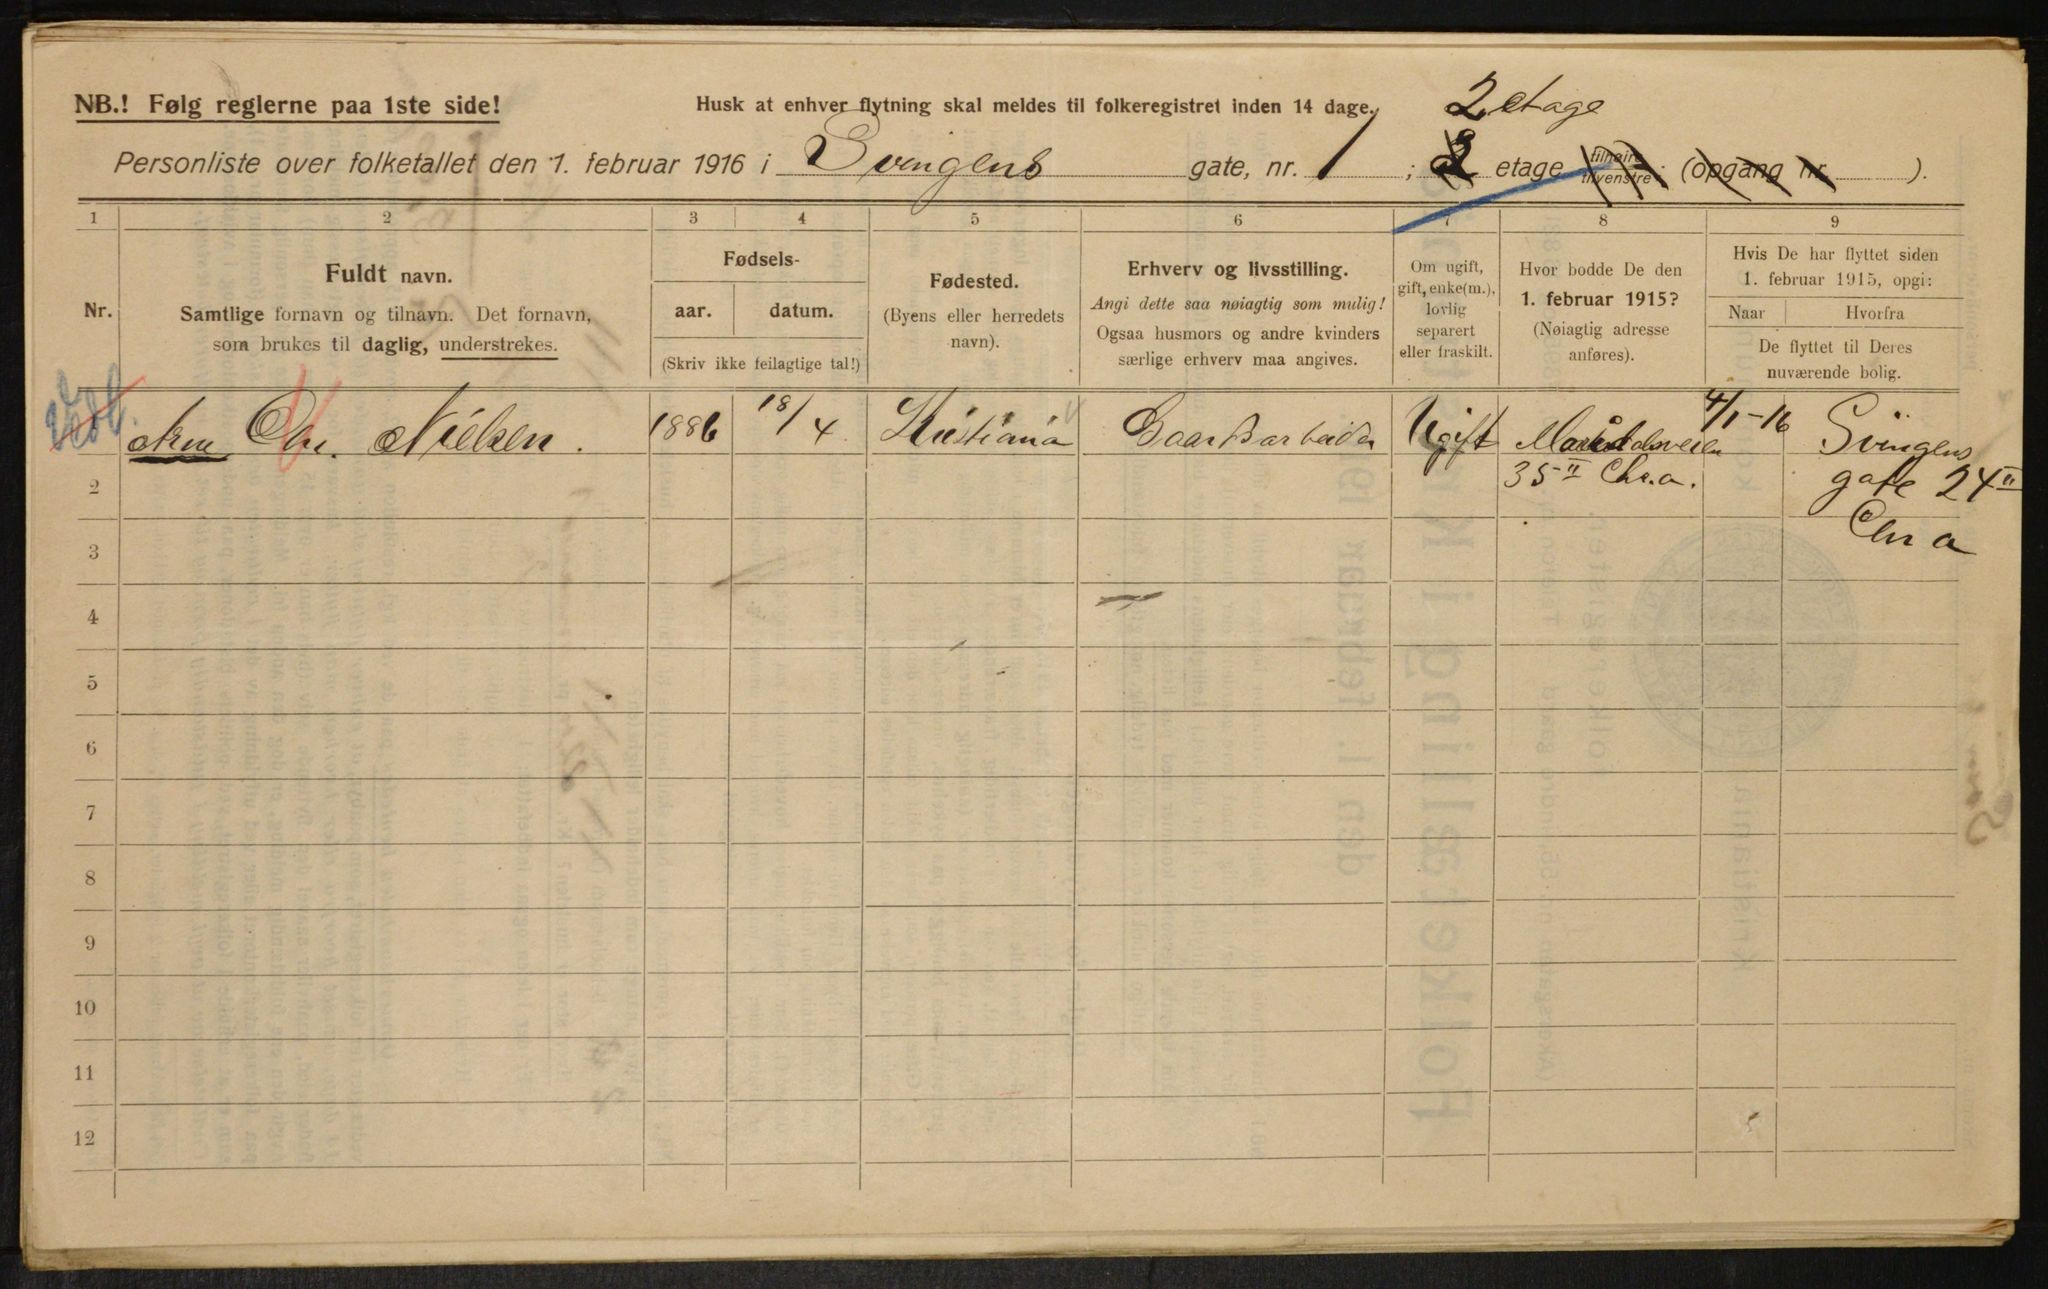 NB.! Følg reglerne paa 1ste side!
Husk at enhver flytning skal meldes til folkeregistret inden 14 dage.
2 etage
Personliste over folketallet den 1. februar 1916 i Svingens gate, nr. 1 ; etage tilhøire tilvenstre ; (opgang nr. ).
1 2 3 4 5 6 7 8 9
Nr.
Fuldt navn.
Samtlige fornavn og tilnavn. Det fornavn,
som brukes til daglig, understrekes.
Fødsels-
aar. datum.
(Skriv ikke feilagtige tal!)
Fødested.
(Byens eller herredets
navn).
Erhverv og livsstilling.
Angi dette saa nøiagtig som mulig!
Ogsaa husmors og andre kvinders
særlige erhverv maa angives.
Om ugift,
gift, enke(m.),
lovlig
separert
eller fraskilt.
Hvor bodde De den
1. februar 1915?
(Nøiagtig adresse
anføres).
Hvis De har flyttet siden
1. februar 1915, opgi:
Naar Hvorfra
De flyttet til Deres
nuværende bolig.
Arne Chr. Nielsen. 1886 18/4 Kristiania Ugift Maridalsveien 4/1-16 Svingens
2 35 II Chr.a. gate 24 II
3 Chr a
4
5
6
7
8
9
10
11
12